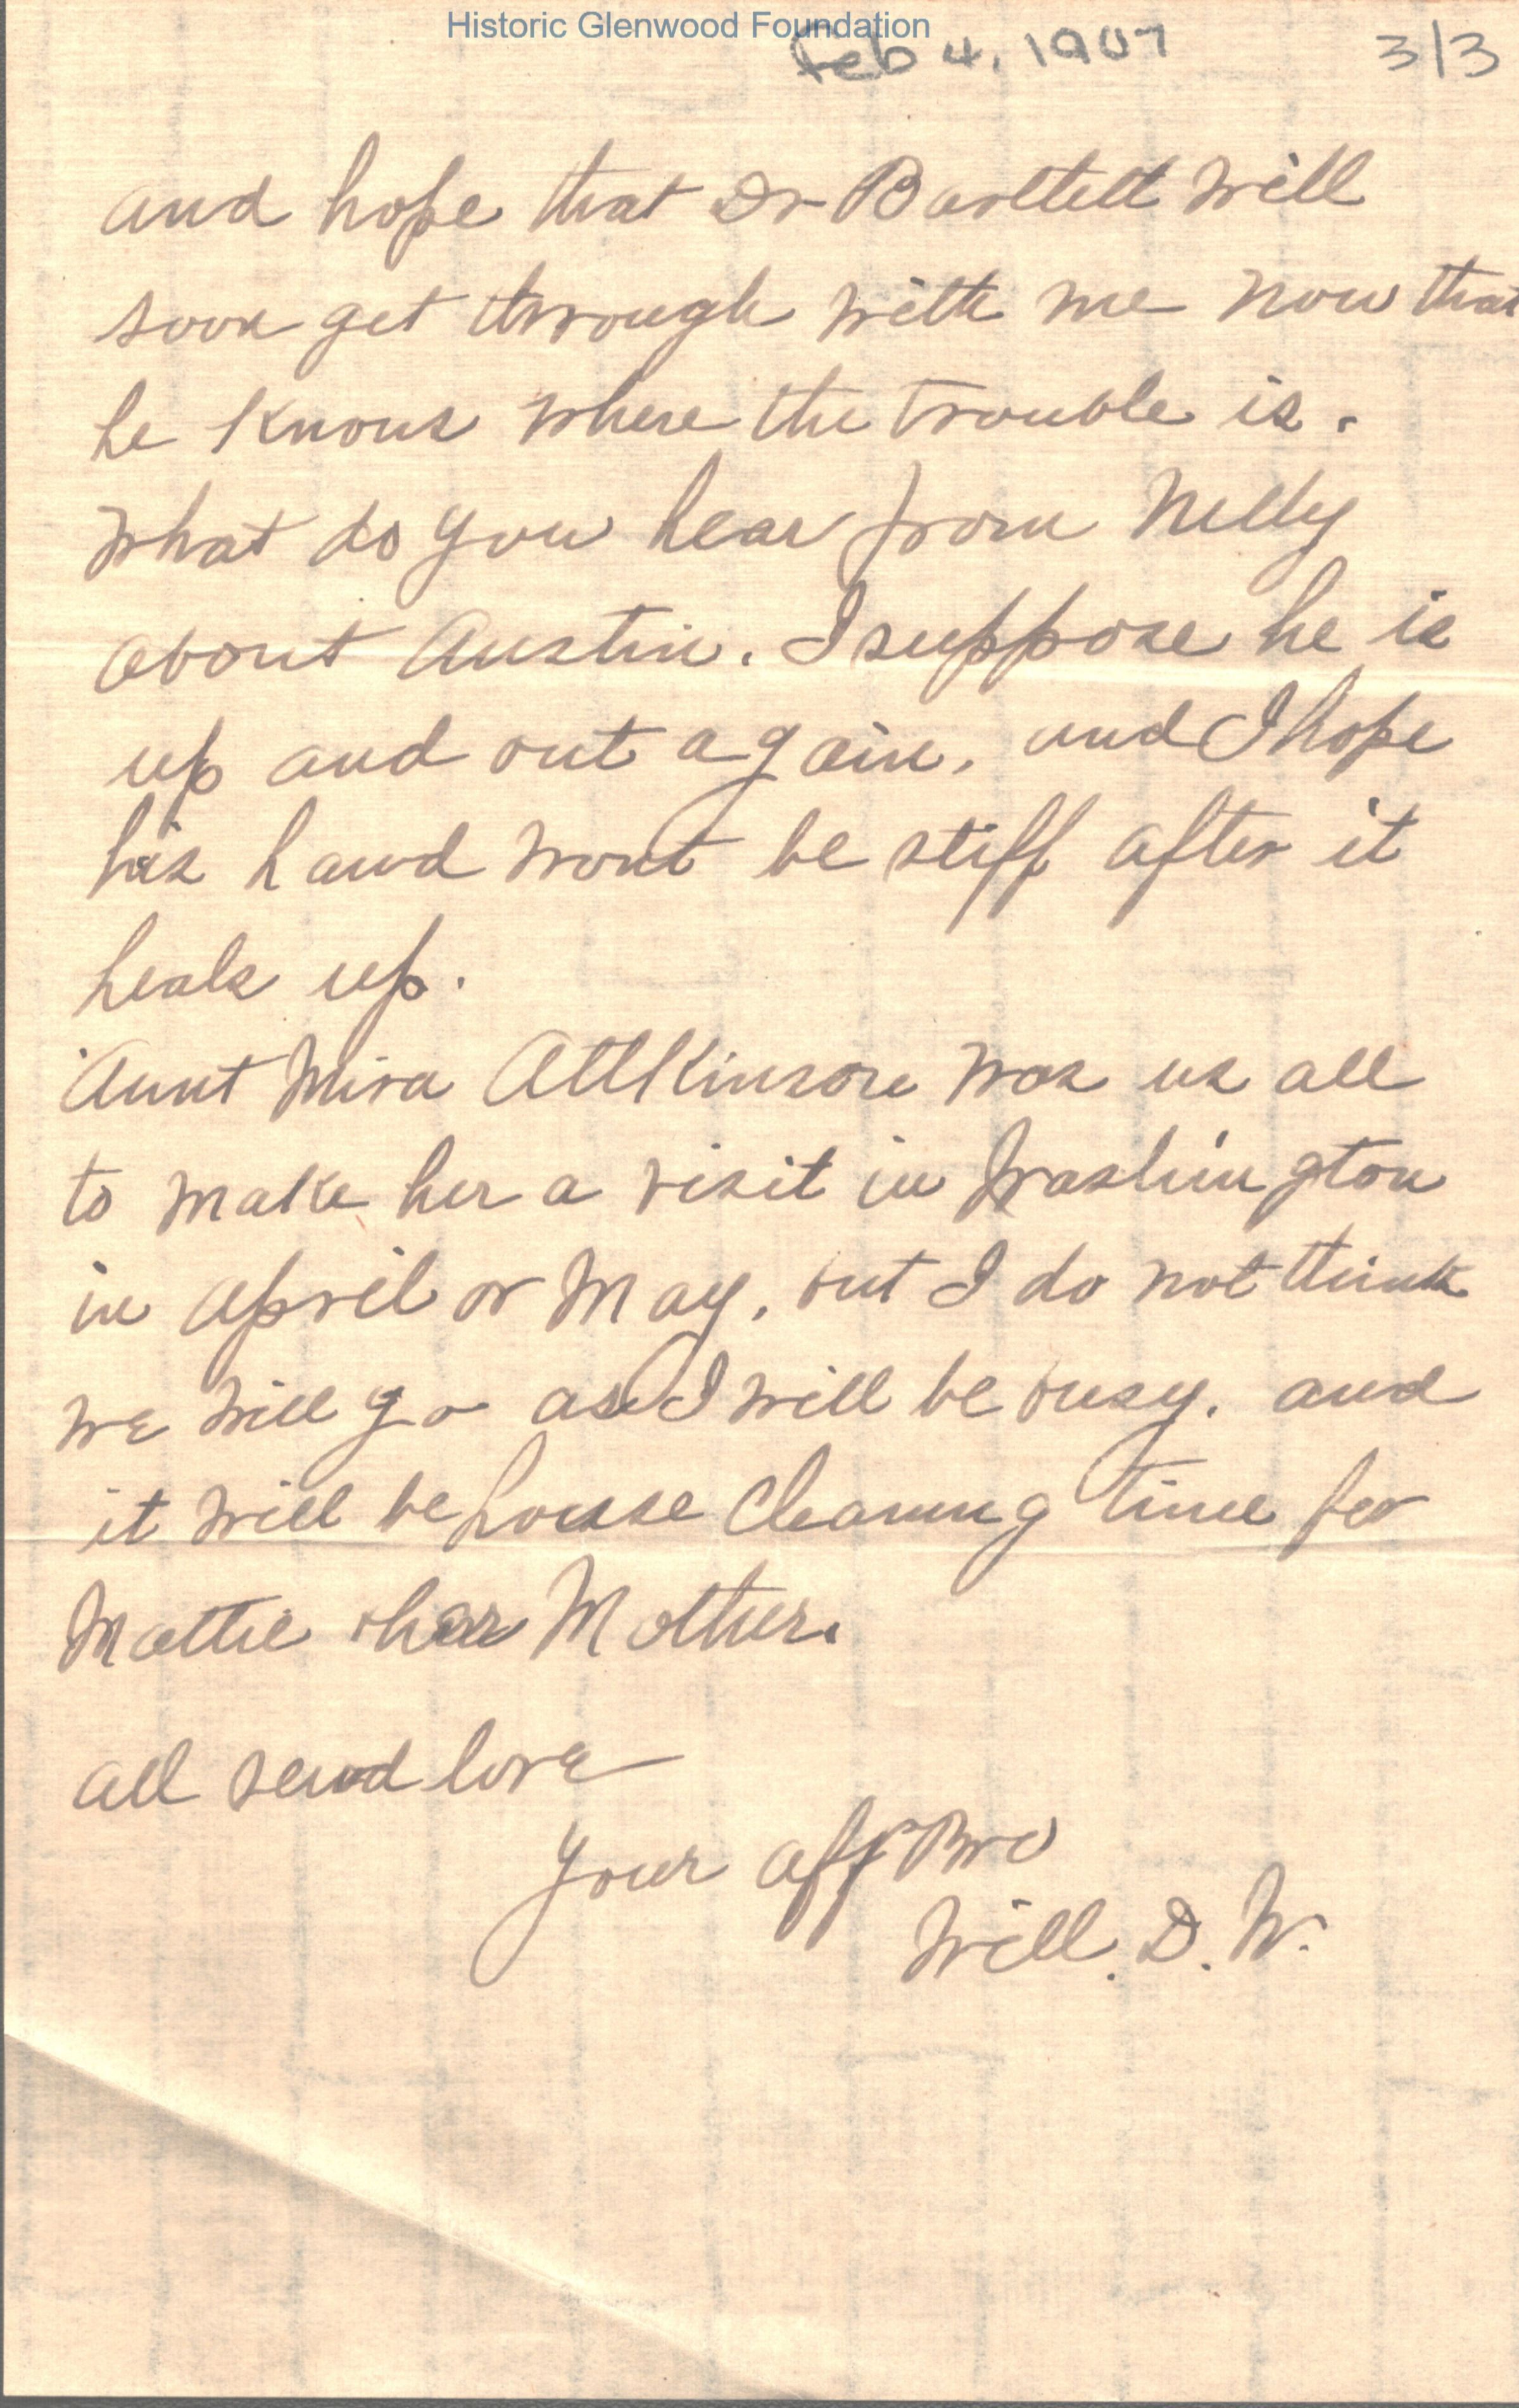 Historic Glenwood Foundation
Feb 4, 1907 3/3
and hope that Dr Bartlett will
soon get through with me now that
he knows where the trouble is.
What do you hear from Nelly
about Austin. I suppose he is
up and out again, and I hope
his hand wont be stiff after it
heals up.
Aunt Mira Attkinson was us all
to make her a visit in Washington
in April or May, but I do not think
we will go as I will be busy. and
it will be house cleaning time for
Mattie & her Mother.
all send love
Your aff Bro
Will. D. W.